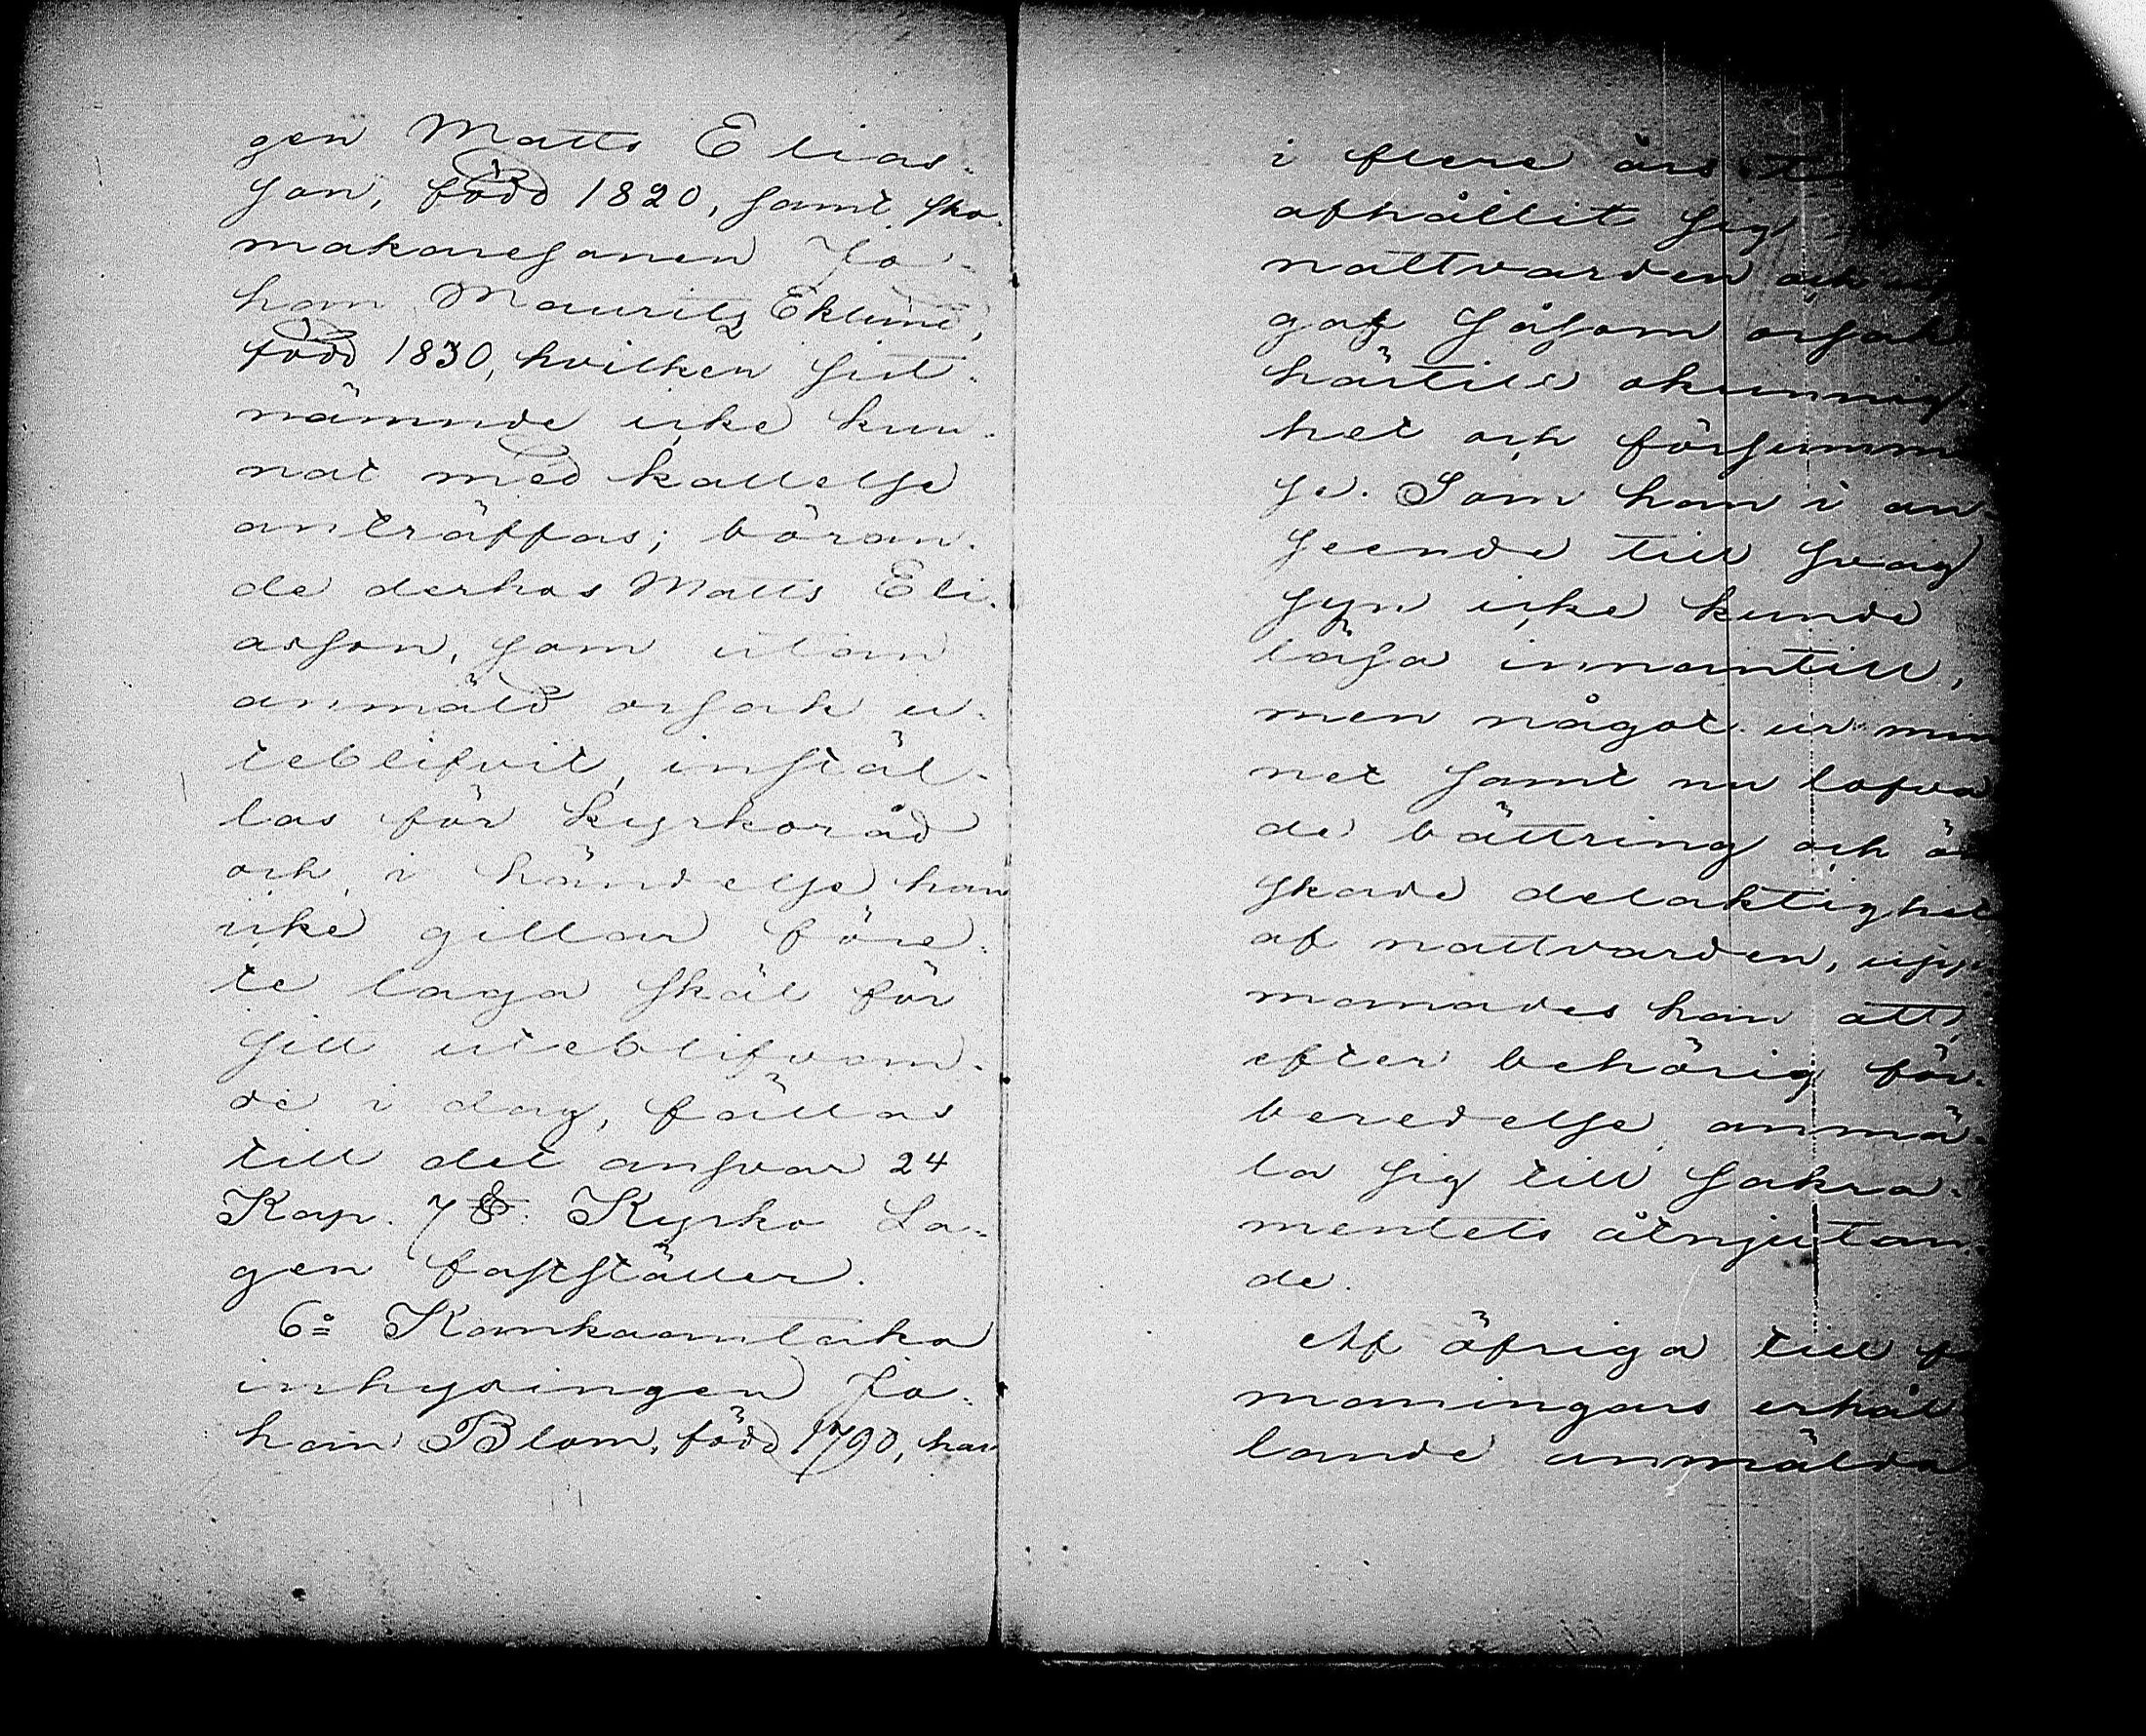 gen Matts Elias-
son, född 1820, samt sko-
makaresonen Jo-
han Mauritz Eklund,
född 1830, hvilken sist-
nämnde icke kun-
nat med kallelse
anträffas; böran-
de derhos Matts Eli-
asson, som utan
anmäld orsak u-
teblifvit, instäl-
las för kyrkoråd
och, i händelse han
icke gittar före-
te laga skäl för
sitt uteblifvan-
de i dag, fällas
till det ansvar 24
Kap. 7 §: Kyrko La-
gen fastställer.
6o Kankaantaka
inhysingen Jo-
han Blom, född 1790, har
i flere års
afhållit sig
nattvarden och
gaf såsom orsak
härtill okunnig-
het och försumm
se. Som han i an-
seende till svag
syn icke kunde
läsa innantill,
men något ur min
net samt nu lofva
de bättring och ön
skade delaktighet
af nattvarden, upp
manades han att,
efter behörig för-
beredelse, anmä-
la sig till sakra-
mentets åtnjutan-
de.
Af öfriga till
maningars erhål
lande anmälda